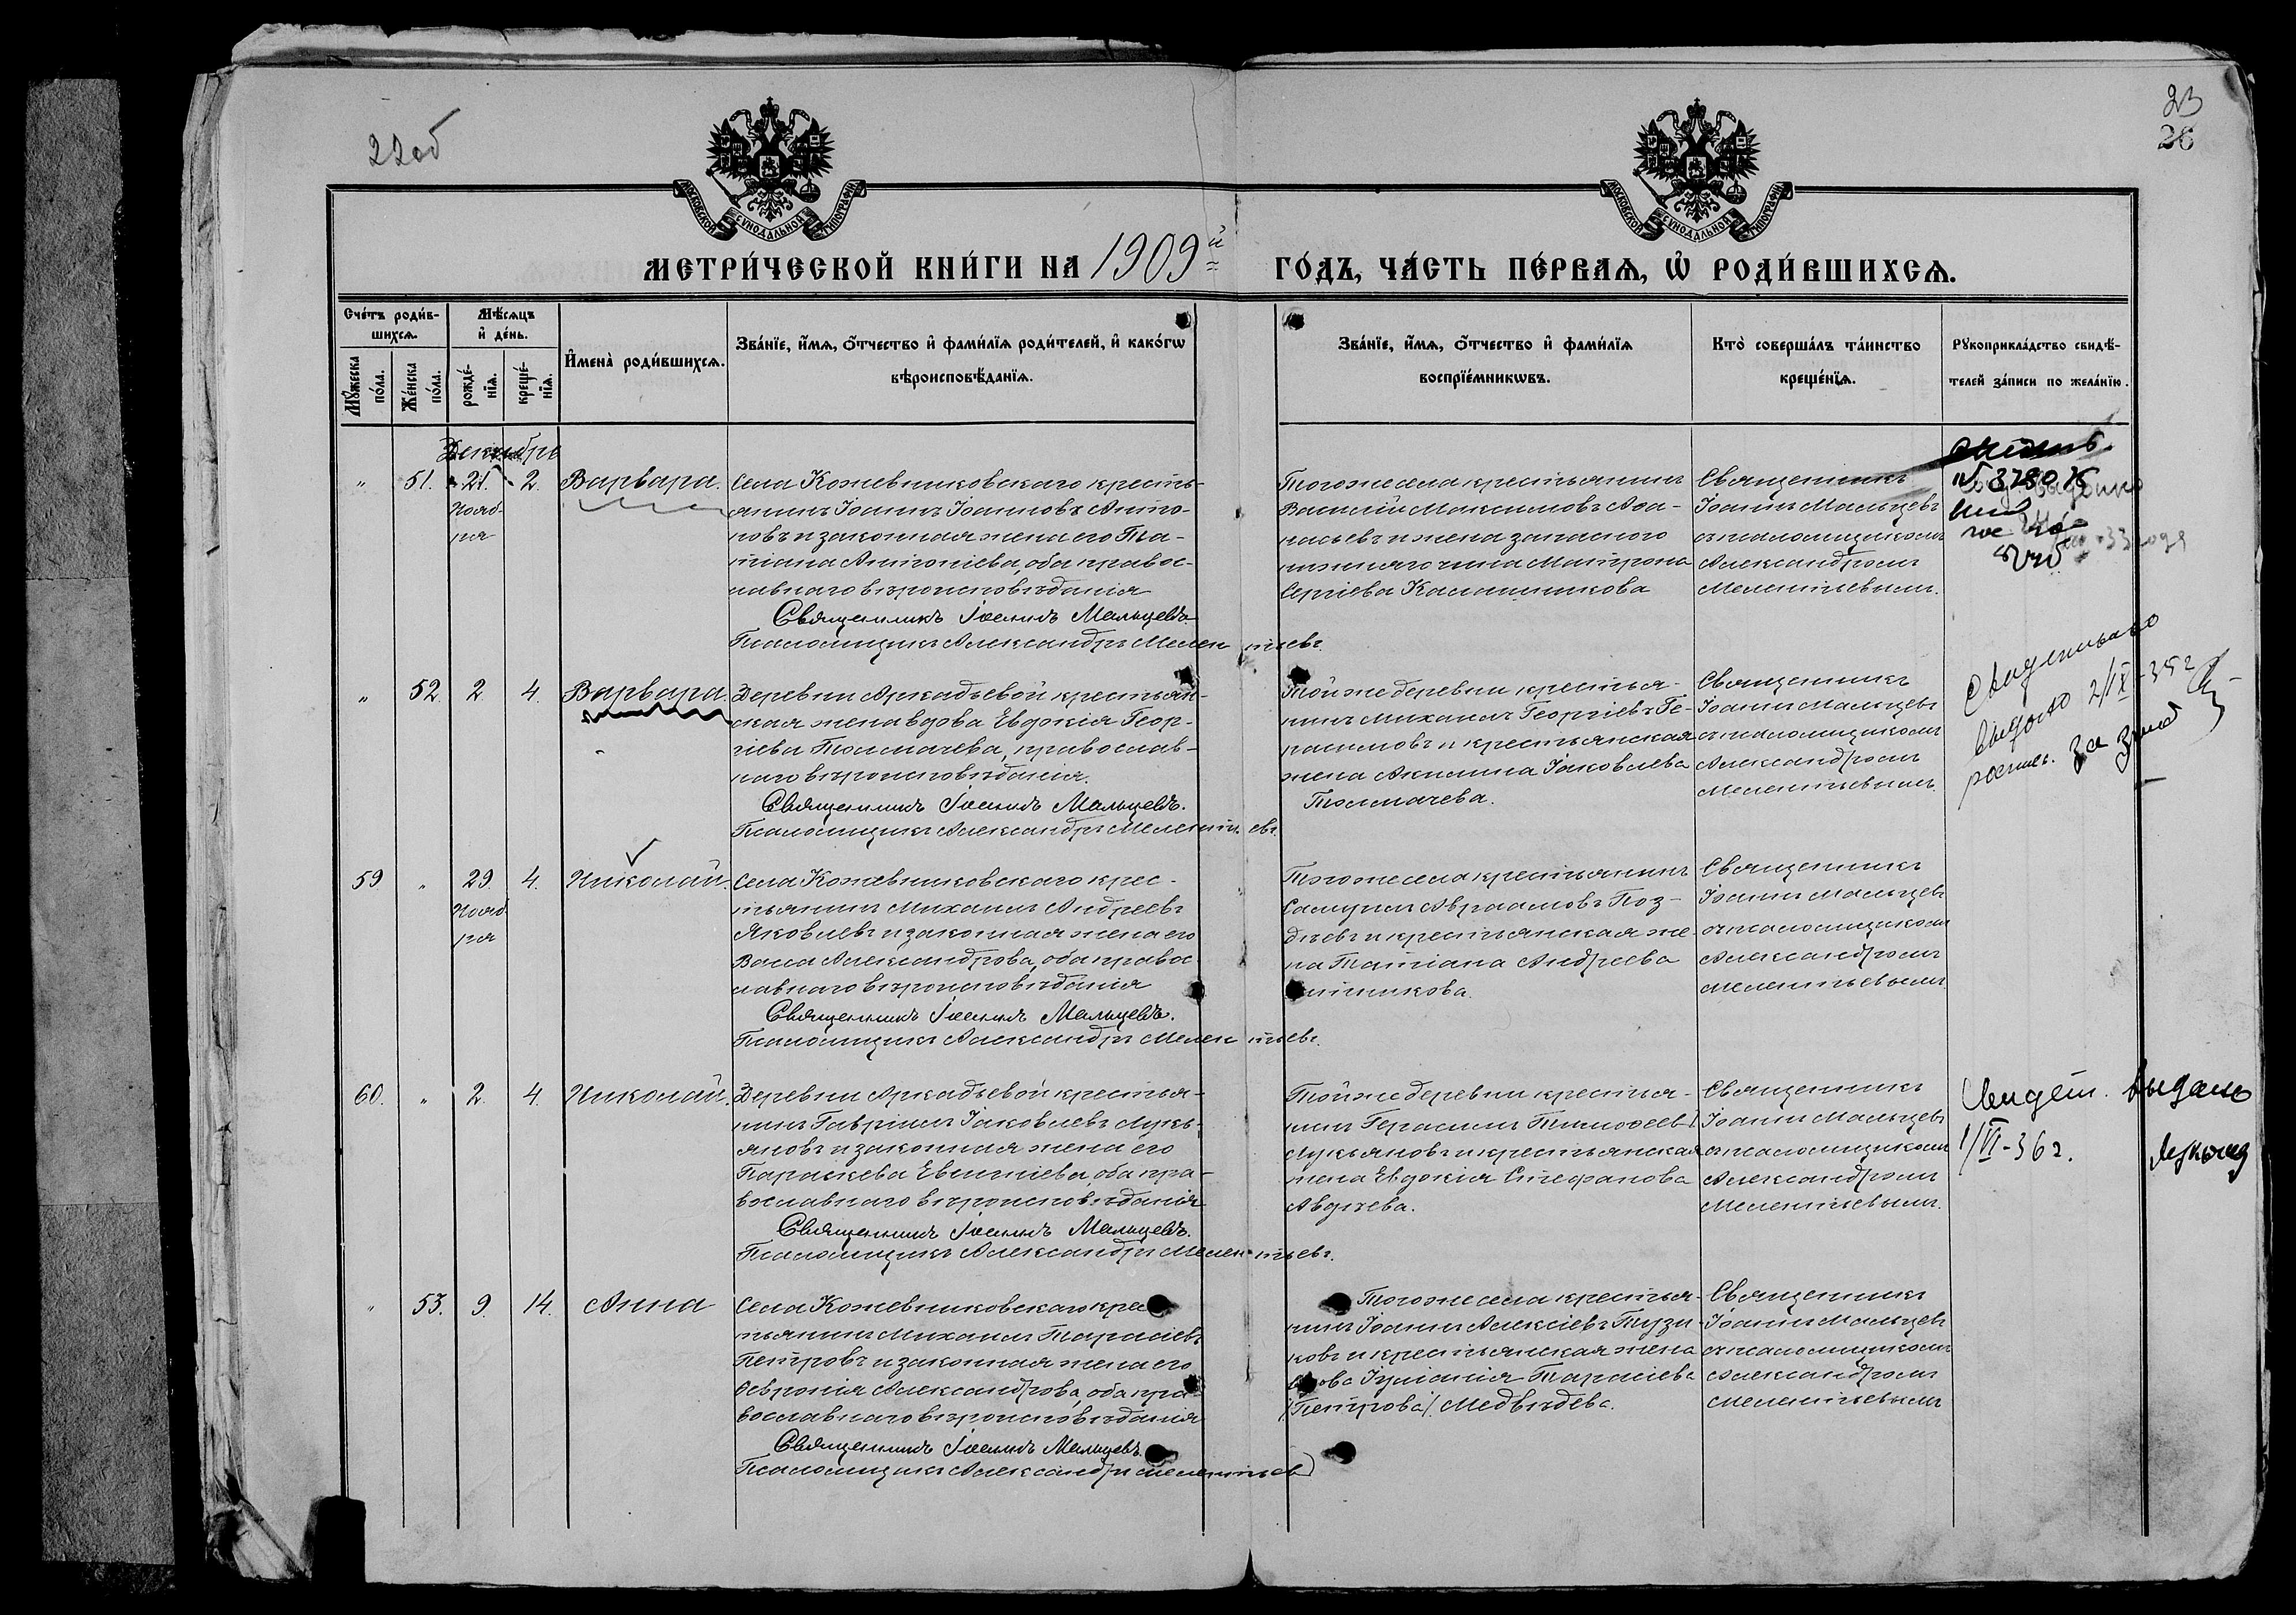 22об
23
26
МОСКОВСКОЙ СѴНОДАЛЬНОЙ ТИПОГРАФІИ
МОСКОВСКОЙ СѴНОДАЛЬНОЙ ТИПОГРАФІИ
МЕТРИ́ЧЕСКОЙ КНИ́ГИ НА 1909й ГО́ДЪ, ЧА́СТЬ ПЕ́РВАѦ, Ѡ҆ РОДИ́ВШИХСѦ.
Сче́тъ роди́в-
шихсѧ.
Мꙋ́жеска
по́ла.
Же́нска
по́ла.
Мѣ́сѧцъ
и҆ де́нь.
рожде́-
нїѧ.
креще́-
нїѧ.
И҆мена̀ роди́вшихсѧ.
Зва́нїе, и҆́мѧ, о҆́тчество и҆ фами́лїѧ роди́телей, и҆ како́гѡ
вѣроисповѣ́данїѧ.
Зва́нїе, и҆́мѧ, о҆́тчество и҆ фами́лїѧ
воспрїе́мникѡвъ.
Кто̀ соверша́лъ та́инство
креще́нїѧ.
Рꙋкоприкла́дство свидѣ́-
телей за́писи по жела́нїю.
Декабрь
" 51. 21. 2. Варвара.
Нояб-
ря
Села Кожевниковскаго кресть-
янинъ Іоаннъ Іоанновъ Анто-
новъ и законная жена его Та-
тіана Антоніева, оба правос-
лавнаго вѣроисповѣданія
Священникъ Іоаннъ Мальцевъ
Псаломщикъ Александръ Мелентьевъ.
Того же села крестьянинъ
Василій Максимовъ Афа-
насьевъ и жена запаснаго
нижняго чина Матрона
Сергіева Калашникова
Священникъ
Іоаннъ Мальцевъ
съ псаломщикомъ
Александромъ
Мелентьевымъ.
№ 3780
33 года
" 52. 2. 4. Варвара.
Деревни Аркадьевой крестьян-
ская жена вдова Евдокія Геор-
гіева Толмачева, православ-
наго вѣроисповѣданія.
Священникъ Іоаннъ Мальцевъ.
Псаломщикъ Александръ Мелентьевъ.
Той же деревни крестья-
нинъ Михаилъ Георгіевъ Ге-
расимовъ и крестьянская
жена Акилина Іаковлева
Толмачева.
Священникъ
Іоаннъ Мальцевъ
съ псаломщикомъ
Александромъ
Мелентьевымъ.
Свидетельство
выдано 2/IX-35г
59 " 29. 4. Николай.
Нояб
ря
Села Кожевниковскаго крес-
тьянинъ Михаилъ Андреевъ
Яковлевъ и законная жена его
Васса Александрова, оба правос
лавнаго вѣроисповѣданія
Священникъ Іоаннъ Мальцевъ.
Псаломщикъ Александръ Мелентьевъ.
Того же села крестьянинъ
Самуилъ Авраамовъ Поз-
дѣевъ и крестьянская же-
на Татіана Андреева
Священникъ
Іоаннъ Мальцевъ
съ псаломщикомъ
Александромъ
Мелентьевымъ
60. " 2. 4. Николай.
Деревни Аркадьевой крестья-
нинъ Гавріилъ Іаковлевъ Лукь-
яновъ и законная жена его
Параскева Евентіева, оба пра-
вославнаго вѣроисповѣданія
Священникъ Іоаннъ Мальцевъ.
Псаломщикъ Александръ Мелентьевъ.
Той же деревни крестья-
нинъ Герасимъ Тимофеевъ
Лукьяновъ и крестьянская
жена Евдокія Стефанова
Авдѣева.
Священникъ
Іоаннъ Мальцевъ
съ псаломщикомъ
Александромъ
Мелентьевымъ.
Свидет. выдано
1/VI-36г.
" 53. 9. 14. Анна
Села Кожевниковскаго крес
тьянинъ Михаилъ Тарасіевъ
Петровъ и законная жена его
Февронія Александрова, оба пра-
вославнаго вѣроисповѣданія
Священникъ Іоаннъ Мальцевъ.
Псаломщикъ Александръ Мелентьевъ
Того же села крестья-
нинъ Іоаннъ Алексіевъ Пузи-
ковъ и крестьянская жена
вдова Іуліанія Тарасіева
(Петрова) Медвѣдева.
Священникъ
Іоаннъ Мальцевъ
съ псаломщикомъ
Александромъ
Мелентьевымъ